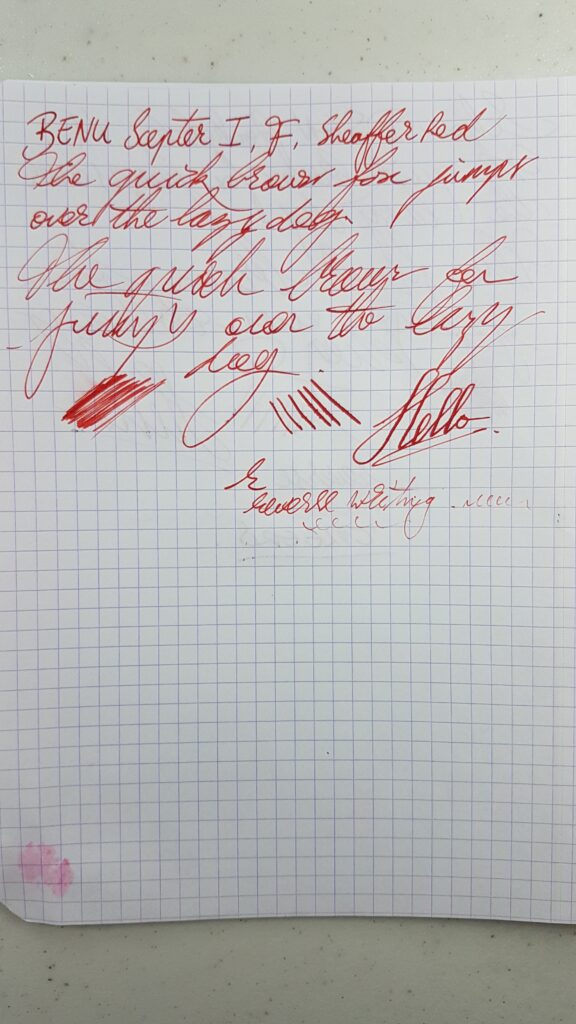 BENU Scepter I, F, Sheaffer Red
The quick brown fox jumps
over the lazy dog.
The quick brown fox
jumps over the lazy
dog.
Hello.
r
reverse writing